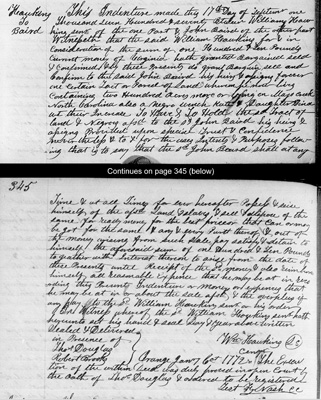 Hawkins
To
Baird
This Indenture made this 17th Day of September one
Thousand seven Hundred & seventy Between William Haw
kins of the one Part & John Baird of the other part
Witnesseth that the said William Hawkins for & in
Consideration of the sum of one Hundred & ten Pounds
Current money of Virginia hath granted Bargained sold
& Confirmed & by these Presents do grant Bargain sell and
Confirm to the said John Baird his heirs & assigns forever
one Certain Tract or Parcel of Land where he now lives
Containing two Hundred Acres more or less lying on Grassy creek
North Carolina also a Negro wench Kate & Daughter Dina
all their Increase To Have & To Hold the sd Tract of
Land & Negroes apt to the sd John Baird his heirs &
assigns Provided upon special Trust & Confidence
nevertheless & to & for the uses Intents & Purposes follow
ing that is to say that the sd John Baird shall at any
Continues on page 345 (below)
345
Time & at all Times for ever hereafter Possess & seize
himself of the aft Land Slaves & sell & dispose of the
same for ready money for the best price that can may
be got for the same & any & every Part thereof & out of
the money arising from such Sale pay satisfy & detain to
himself the aforesaid sum of one Hundred & ten Pounds
to gather with Interest thereon to arise from the date of
these Presents until Receipt of the sd money & also reimburse
himself all reasonable expence that he may be at in recor
ding this Present Indenture & money or expences that
he may be at in or about the sale aft &
any Pay to the sd William Hawkins or his order
In Witness whereof the sd William Hawkins hath
hereunto set his hand & seal Day & Year above written
Sealed & Delivered
in Presence of
Thos Douglas
Robert Brooks
Wm Hawkins
Orange Janry Cot 1772 The Execu
tion of the within Deed was duly proved in open Court by
the Oath of Thos Douglas & ordered to be registered
Test F Nash CC